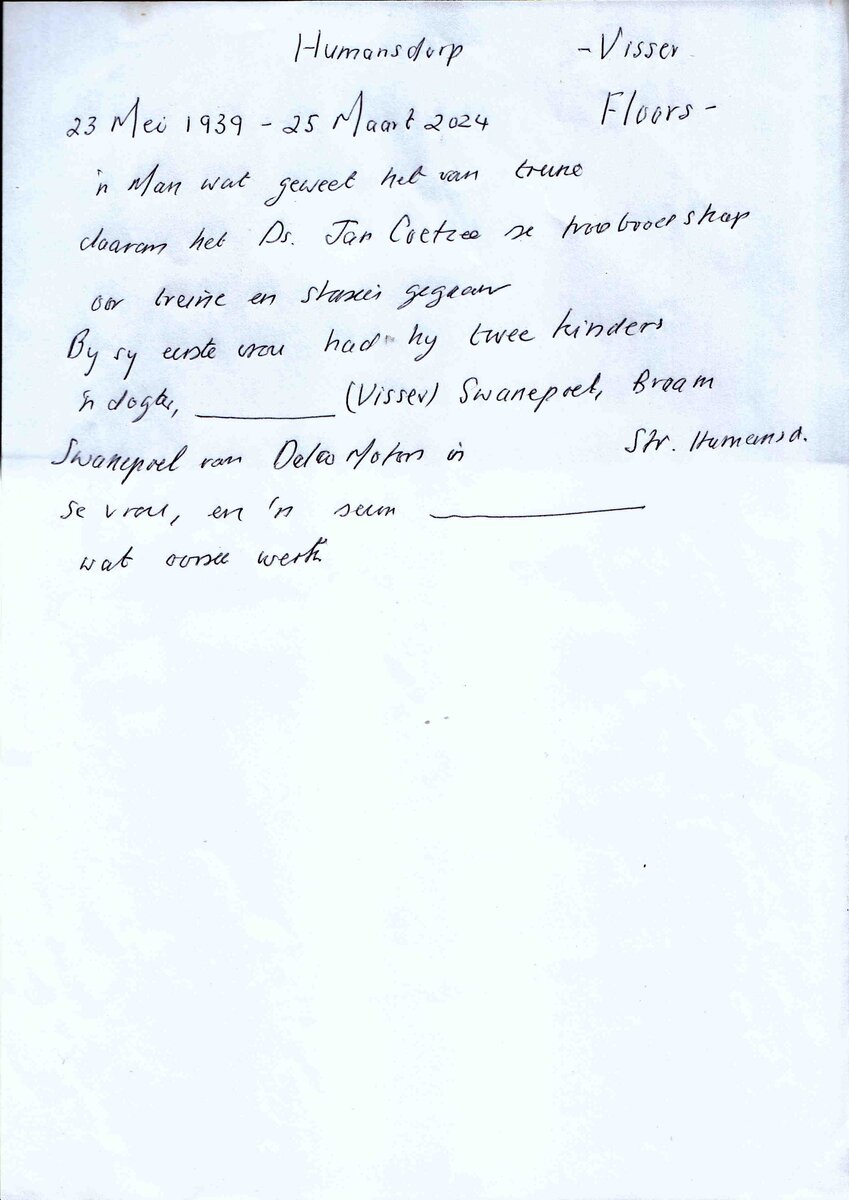 Humansdorp - Visser
23 Mei 1939 - 25 Maart 2024 Floors -
'n Man wat geweet het van treine
daarom het Ds. Jan Coetzee se troosboodskap
oor treine en stasies gegaan
By sy eerste vrou had hy twee kinders
'n dogter, __________ (Visser) Swanepoel, Braam
Swanepoel van Delco Motors in Str. Humansd.
se vrou, en 'n seun __________
wat oorsee werk